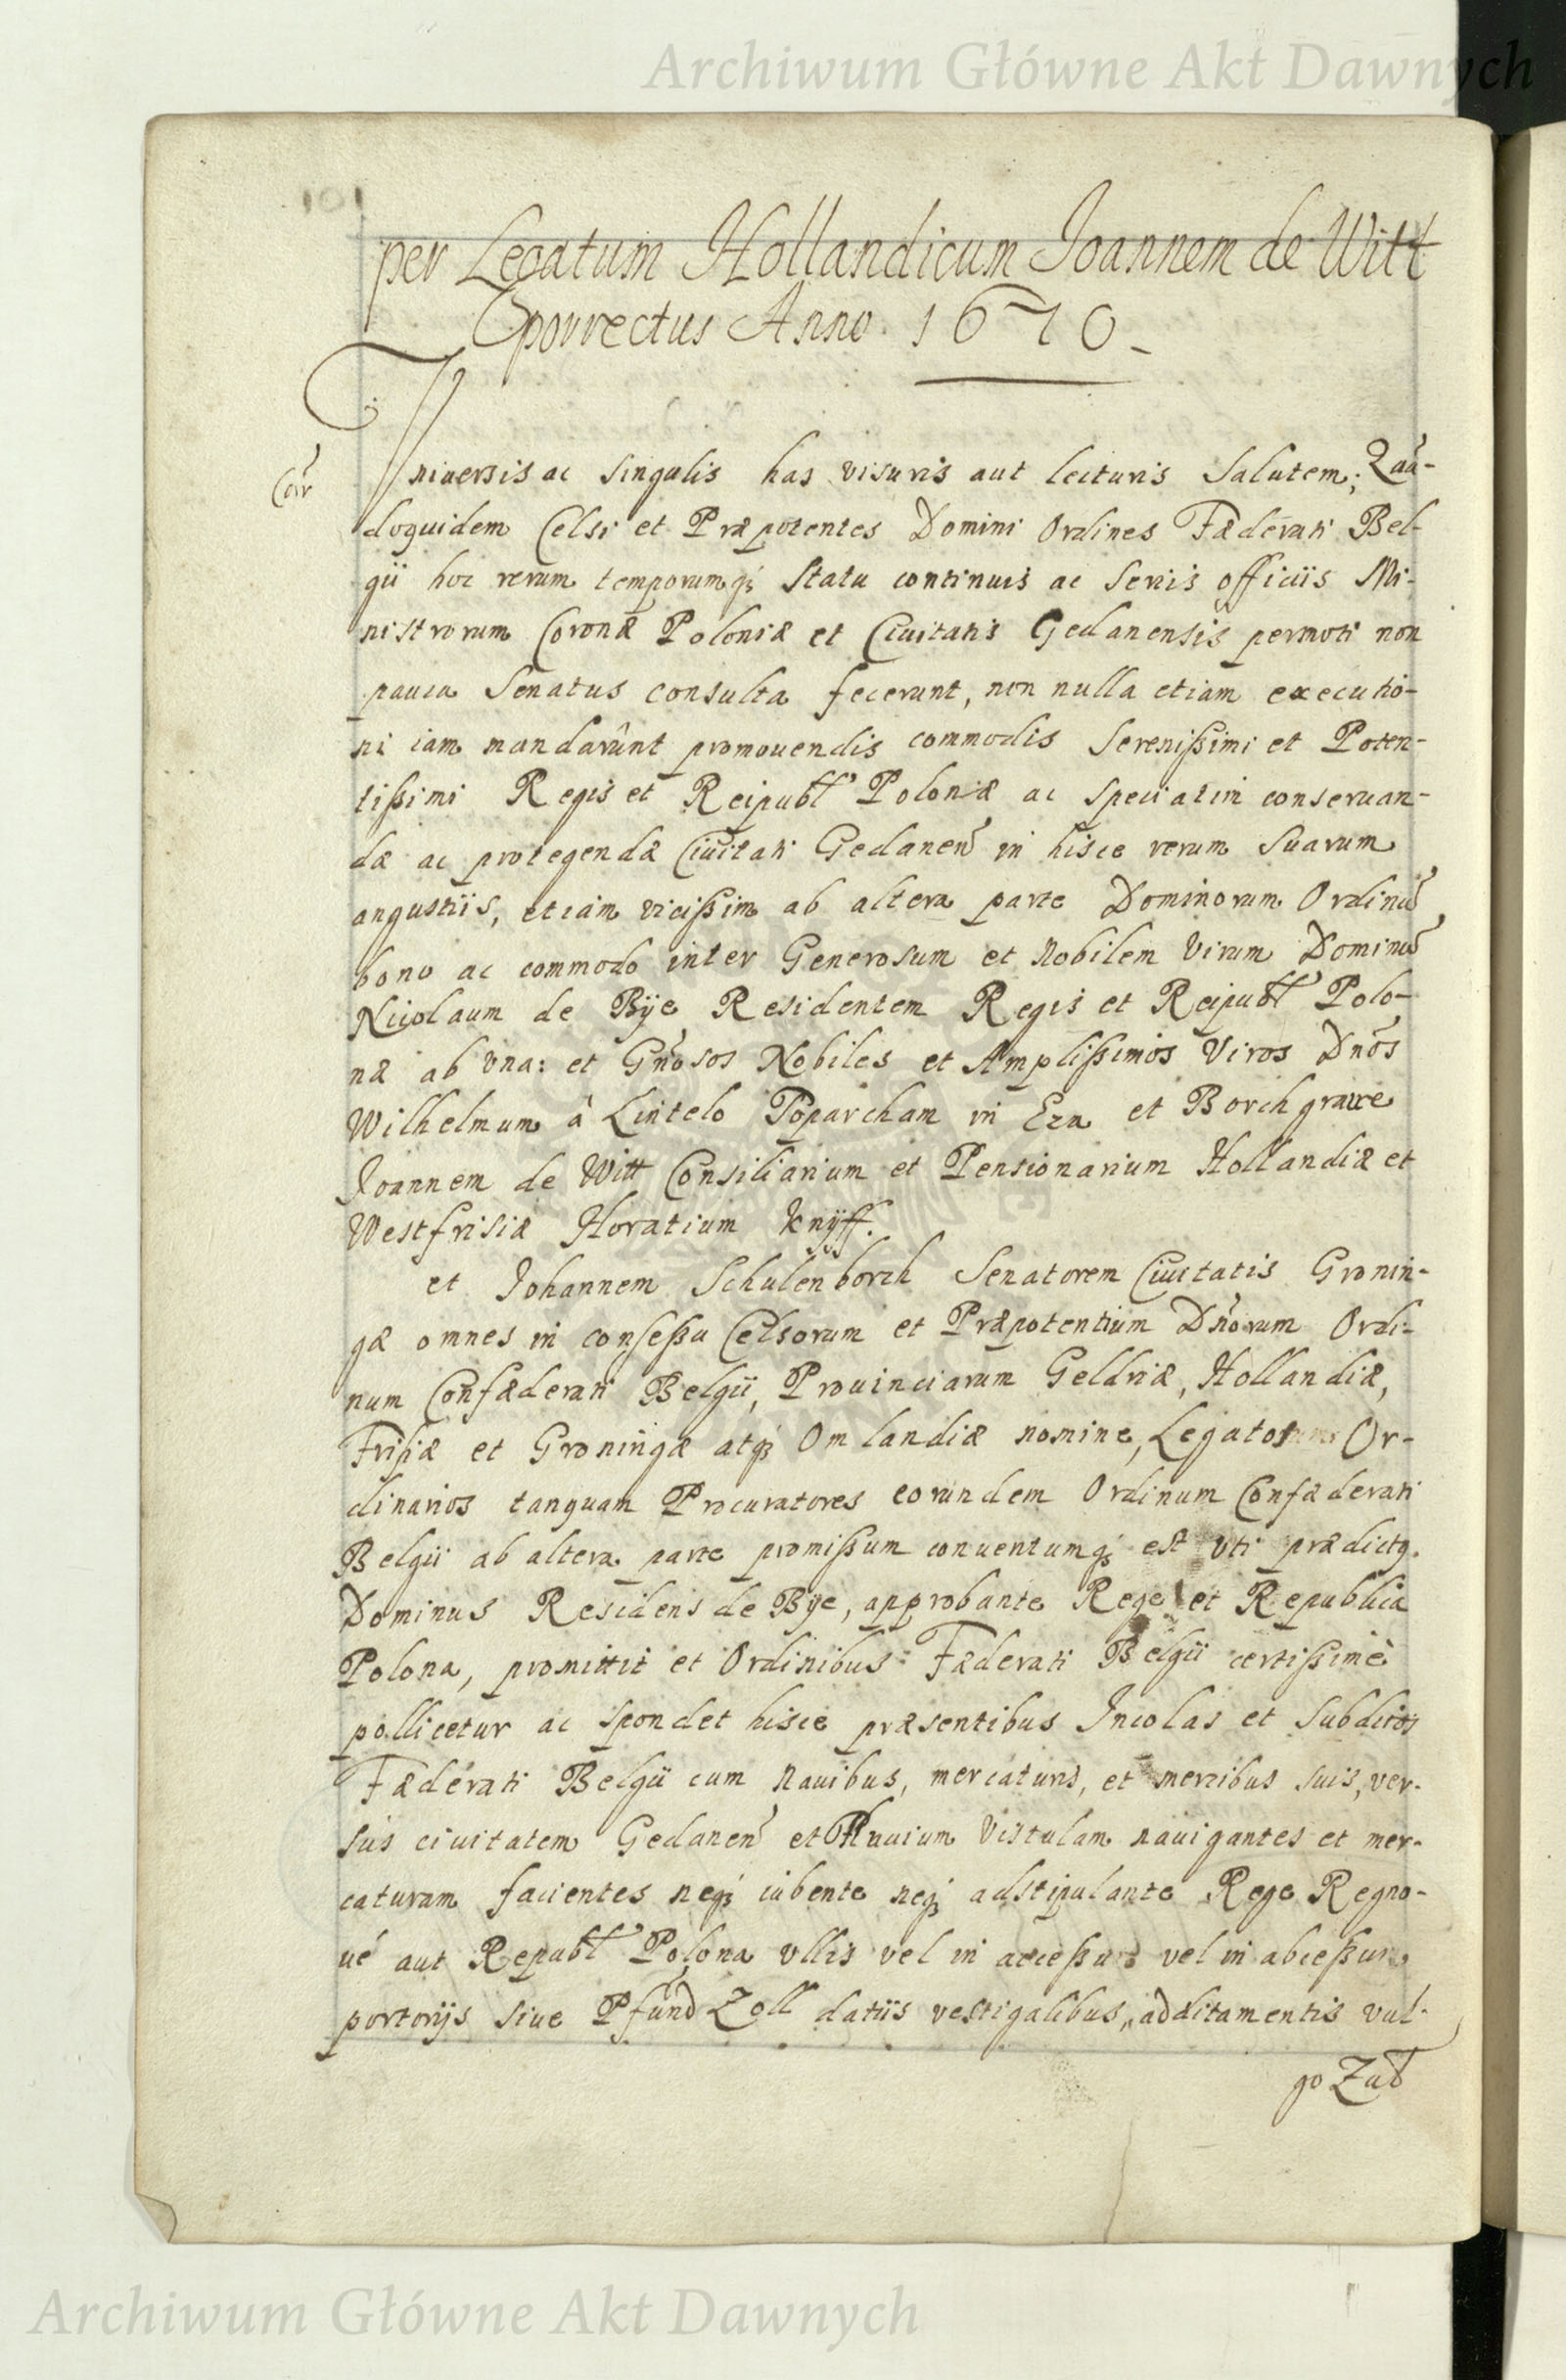 Archiwum Główne Akt Dawnych
101
per Legatum Hollandicum Joannem de Witt
porrectus Anno. 1670_
Vniuersis ac singulis has visuris aut lecturis Salutem; Quan-
Corr
doquidem Celsi et Præpotentes Domini Ordines Fæderati Bel-
gii hoc rerum temporumq; statu continuis ac seriis officiis Mi-
nistrorum Coronæ Poloniæ et Ciuitatis Gedanensis permoti non
pauca Senatus consulta fecerunt, non nulla etiam executio-
ni iam mandarûnt promouendis commodis Serenißimi et Poten-
tißimi Regis et Reipubl' Poloniæ ac speciatim conseruan-
dæ ac protegendæ Ciuitati Gedanen̄ in hisce rerum suarum
angustiis, etiam vicißim ab altera parte Dominorum Ordinū
bono ac commodo inter Generosum et Nobilem Virum Dominū
Nicolaum de Bÿe Residentem Regis et Reipubl' Polo-
næ ab vna: et Gn̄osos Nobiles et Amplißimos Viros Dn̄os
Wilhelmum à Lintelo Toparcham in Eza et Borchgrawe
Joannem de Witt Consiliarium et Pensionarium Hollandiæ et
Westfrisiæ Horatium Knÿff.
et Johannem Schulenborch Senatorem Ciuitatis Gronin-
gæ omnes in conseßu Celsorum et Præpotentium Dn̄orum Ordi-
num Confæderati Belgii, Prouinciarum Geldriæ, Hollandiæ,
Frisiæ et Groningæ atq; Omlandiæ nomine, Legatos Or-
dinarios tanquam Procuratores eorundem Ordinum Confæderati
Belgii ab altera parte promißum conuentumq; est vti prædictq.
Dominus Residens de Bÿe, approbante Rege et Republica
Polona, promittit et Ordinibus Fæderati Belgii certißimè
pollicetur ac spondet hisce præsentibus Incolas et Subditos
Fæderati Belgii cum Nauibus, mercaturis, et mercibus suis, ver-
sus ciuitatem Gedanen̄ et Fluuium Vistulam nauigantes et mer-
caturam facientes neq; iubente neq; adstipulante Rege Regno-
ué aut Republ' Polona vllis vel in acceßu vel in abceßu
portorijs siue Pfund Zoll datiis vectigalibus, additamentis vul-
go Zud
Archiwum Główne Akt Dawnych